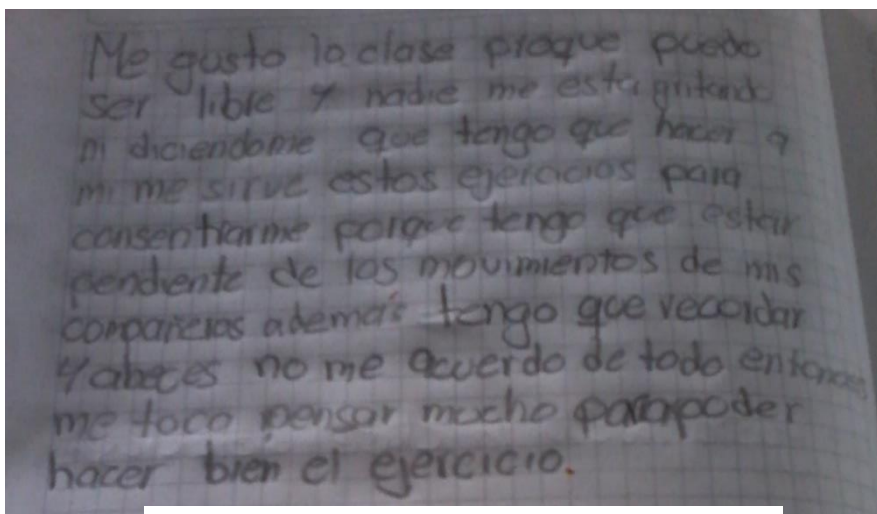 Me gusto la clase proque puedo
ser libre y nadie me esta gritando
ni diciendome que tengo que hacer a
mi me sirve estos ejercicios para
consentrarme porque tengo que estar
pendiente de los movimientos de mis
compañeros ademas tengo que recordar
y abeces no me acuerdo de todo entonces
me toco pensar mucho para poder
hacer bien el ejercicio.